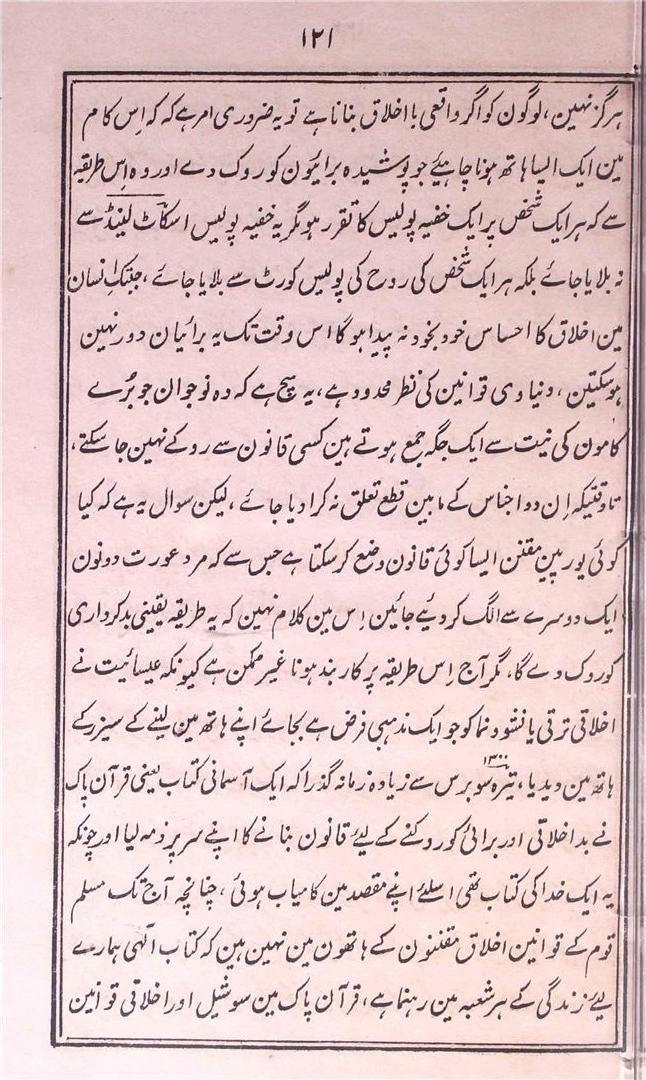 ۱۲۱
ہرگز نہین، لوگون کو اگر واقعی با اخلاق بنانا ہے تو یہ ضروری امر ہے کہ کہ اِس کام
مین ایک ایسا ہاتھ ہونا چاہیئے جو پوشیدہ برایئون کو روک دے اور وہ اِس طریقہ
سے کہ ہر ایک شخص پر ایک خفیہ پولیس کا تقرر ہو مگر یہ خفیہ پولیس اسکاٹ لینڈ سے
نہ بلایا جائے بلکہ ہر ایک شخص کی روح کی پولیس کورٹ سے بلایا جائے، جبتک اِنسان
مین اخلاق کا احساس خود بخود نہ پیدا ہو گا اس وقت تک یہ برائیان دور نہین
ہو سکتین، دنیا وی قوانین کی نظر محدود ہے، یہ سچ ہے کہ وہ نوجوان جو بُرے
کامون کی نیت سے ایک جگہ جمع ہوتے ہین کسی قانون سے روکے نہین جا سکتے،
تاوقتیکہ اِن دو اجناس کے مابین قطع تعلق نہ کرا دیا جائے، لیکن سوال یہ ہے کہ کیا
کوئی یورپین مقنن ایسا کوئی قانون وضع کر سکتا ہے جس سے کہ مرد عورت دونون
ایک دوسرے سے الگ کر دیئے جائین اِس مین کلام نہین کہ یہ طریقہ یقینی بدکرداری
کو روک دے گا، مگر آج اِس طریقہ پر کاربند ہونا غیر ممکن ہے کیونکہ عیسائیت نے
اخلاقی ترقی یا نشوونما کو جو ایک مذہبی فرض ہے بجائے اپنے ہاتھ مین لینے کے سیزر کے
ہاتھ مین دیدیا، تیرہ سو ۱۳۰۰ برس سے زیادہ زمانہ گذرا کہ ایک آسمانی کتاب یعنی قرآن پاک
نے بداخلاقی اور برائی کو روکنے کے لیئے قانون بنانے کا اپنے سر پر ذمہ لیا اور چونکہ
یہ ایک خدا کی کتاب تھی اسلئے اپنے مقصد مین کامیاب ہوئی، چنانچہ آج تک مسلم
قوم کے قوانین اخلاق مقننون کے ہاتھون مین نہین ہین کہ کتاب الٰہی ہمارے
لیئے زندگی کے ہر شعبہ مین رہنما ہے، قرآن پاک مین سوشیل اور اخلاقی قوانین